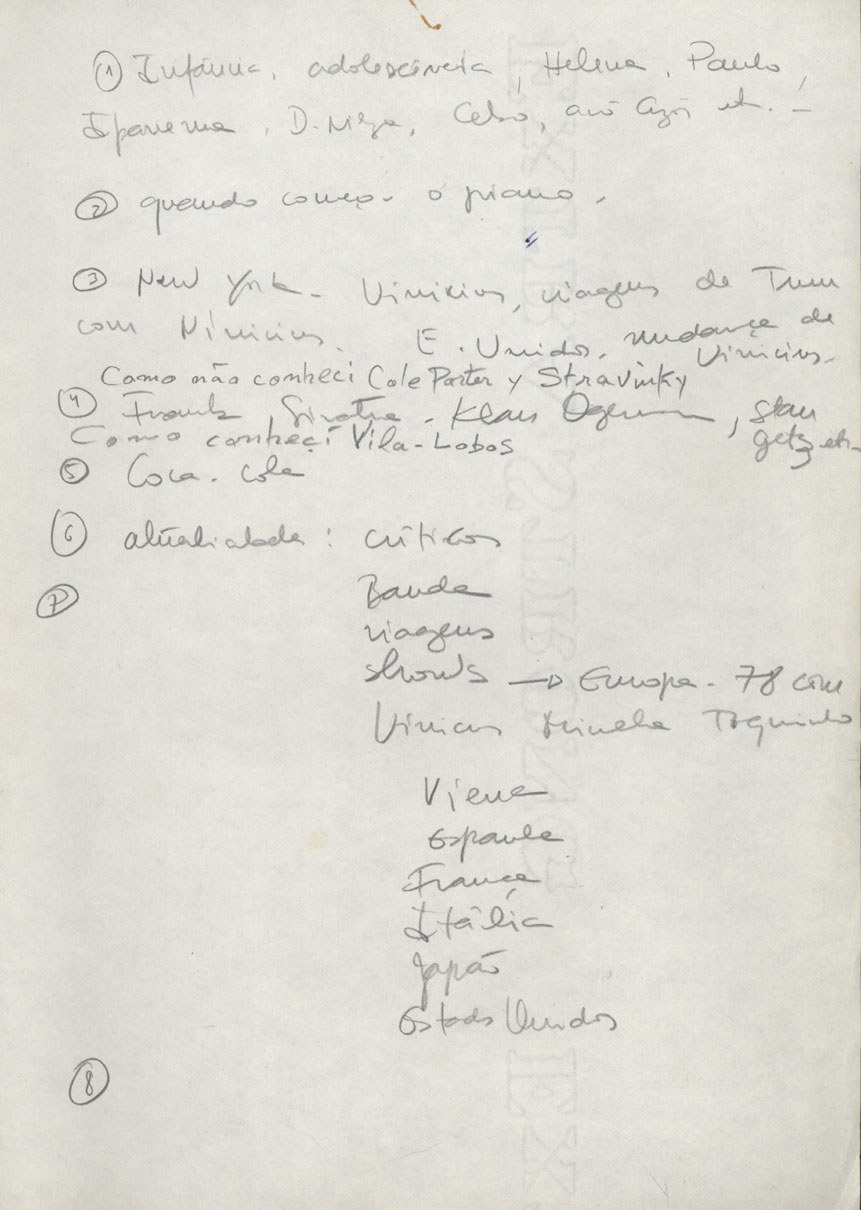 ① Infância, adolescência, Helena, Paulo,
Ipanema, D. Nilza, Celso, avô Azôr etc. –
② quando começ. o piano.
③ New York – Vinicius, viagens de Tom
com Vinicius. E. Unidos. mudança de
Vinicius.
Como não conheci Cole Porter y Stravinky
④ Frank Sinatra – Klaus Ogerman, Stan
getz etc.
Como conheçi Vila-Lobos
⑤ Coca-cola
⑥ atualidade: críticos
⑦ Banda
viagens
shows → Europa – 78 com
Vinicius Miucha Toquinho
Viena
Espanha
França
Itália
Japão
Estados Unidos
⑧